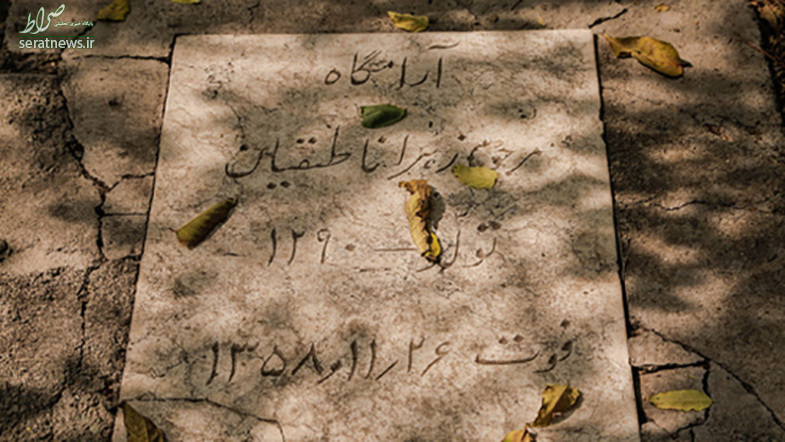 صراط
پایگاه خبری تحلیلی
seratnews.ir
آرامگاه
مرحومه زهرا ناطقیان
تولد ۱۲۹۰
فوت ۱۳۵۸٫۱۱٫۲۶